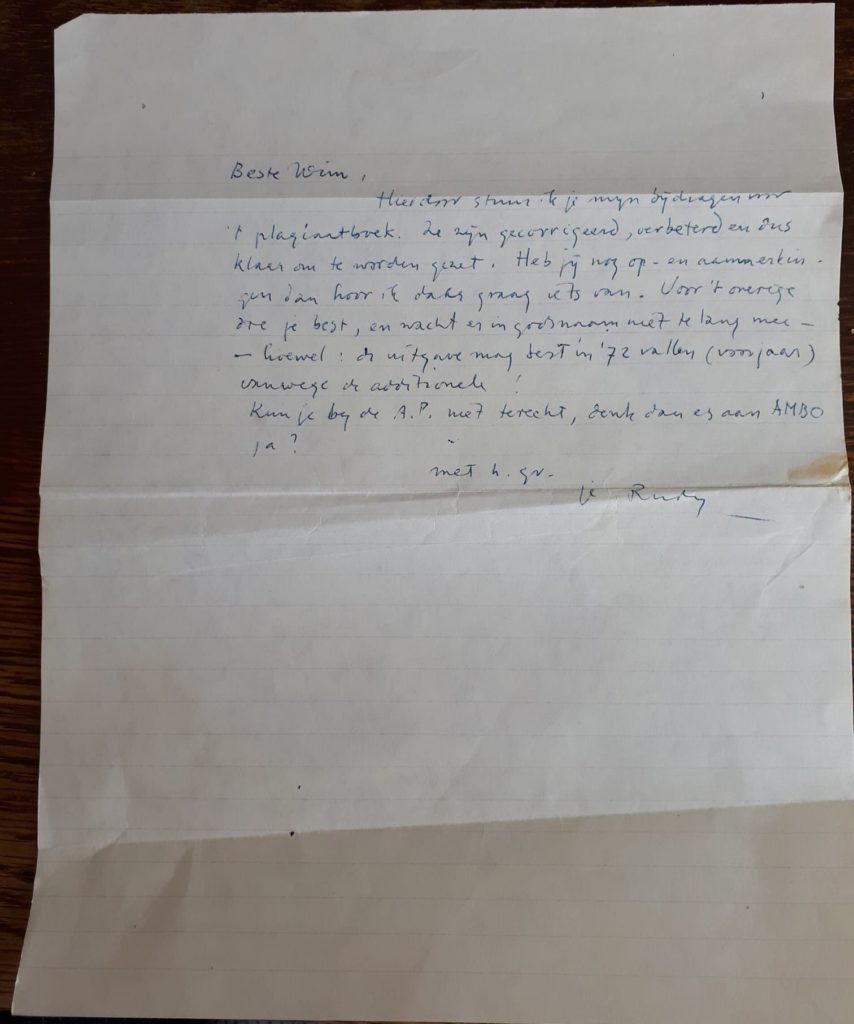 Beste Wim,
Hierdoor stuur ik je mijn bijdragen voor
't plagiaatboek. Ze zijn gecorrigeerd, verbeterd en dus
klaar om te worden gezet. Heb jij nog op- en aanmerkin-
gen dan hoor ik graag iets van. Voor 't overige
doe je best, en wacht er in godsnaam niet te lang mee -
- hoewel: de uitgave mag best in '72 vallen (voorjaar)
vanwege de additionele !
Kun je bij de A.P. niet terecht, denk dan es aan AMBO
ja?
met h. gr.
je Rudy